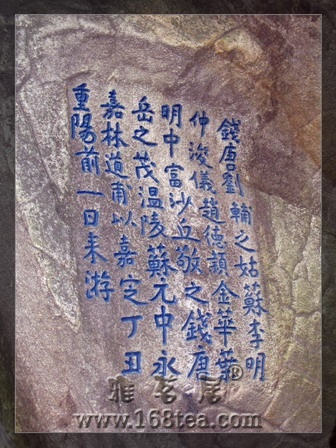 錢唐劉輔之姑蘇李明
仲浚儀趙德頴金華葉
明中富沙丘敬之錢唐
岳之茂溫陵蘇元中永
嘉林道甫以嘉定丁丑
重陽前一日來游
雅茗居®
www.168tea.com